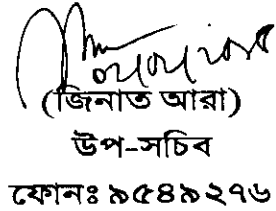 (জিনাত আরা)
উপ-সচিব
ফোনঃ ৯৫৪৯২৭৬